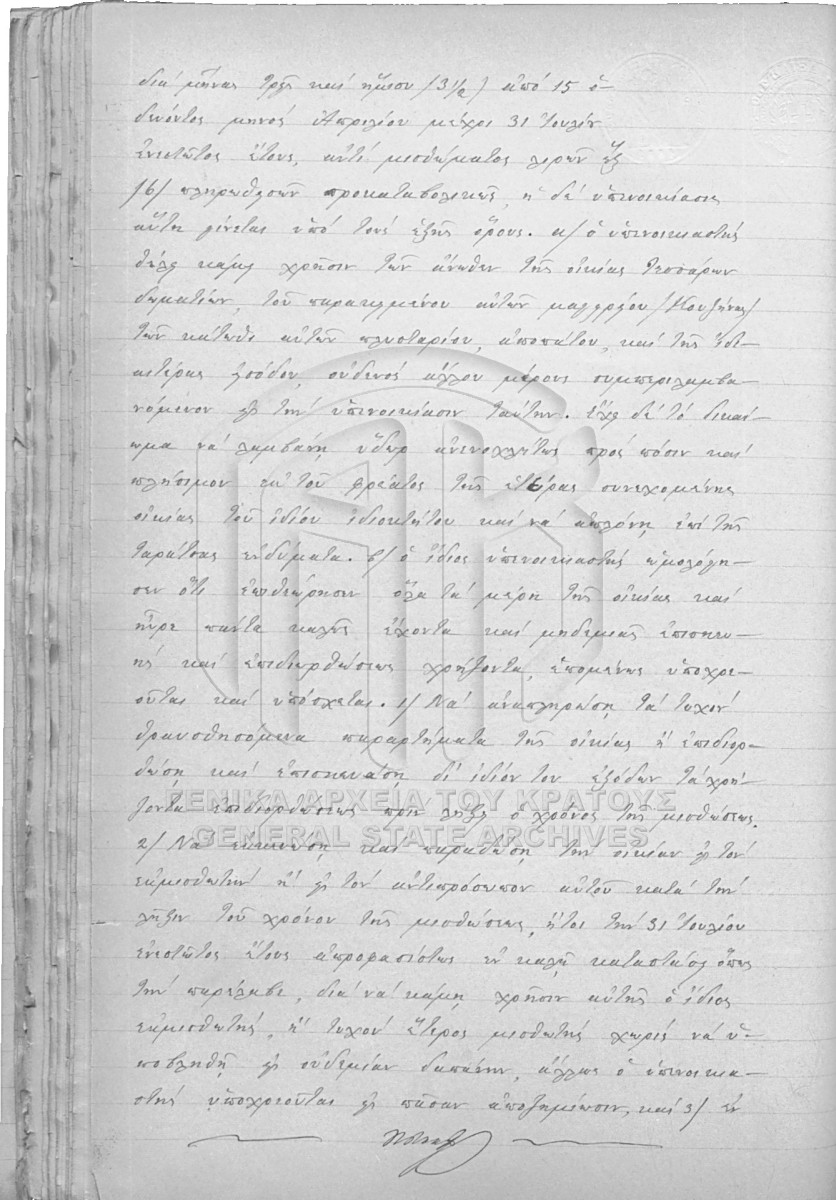 διά μῆνας τρεῖς καί ἥμισυ /3½/ ἀπό 15 ὁ-
δεύοντος μηνός Ἀπριλίου μέχρι 31 Ἰουλίου
ἐνεστῶτος ἔτους, ἀντί μισθώματος λιρῶν ἕξ
/6/ πληρωθεισῶν προκαταβολικῶς, ἡ δέ ὑπενοικίασις
αὕτη γίνεται ὑπό τούς ἑξῆς ὅρους. α/ ὁ ὑπενοικιαστής
θέλει κάμῃ χρῆσιν τῶν ἄνωθεν τῆς οἰκίας τεσσάρων
δωματίων, τοῦ παρακειμένου αὐτῶν μαγειρείου /Κουζίνας/
τῶν κάτωθι αὐτῶν πλυσταρίου, ἀποπάτου, καί τῆς ἰδι-
αιτέρας εἰσόδου, οὐδενός ἄλλου μέρους συμπεριλαμβα-
νομένου εἰς τήν ὑπενοικίασιν ταύτην. ἔχει δέ τό δικαί-
ωμα νά λαμβάνῃ ὕδωρ ἀνενοχλήτως πρός πόσιν καί
πλύσιμον ἐκ τοῦ φρέατος τῆς ἑτέρας συνεχομένης
οἰκίας τοῦ ἰδίου ἰδιοκτήτου καί νά ἁπλόνῃ ἐπί τῆς
ταράτσας ἐνδύματα. β/ ὁ ἴδιος ὑπενοικιαστής ὡμολόγη-
σεν ὅτι ἐπιθεώρησεν ὅλα τά μέρη τῆς οἰκίας καί
ηὗρε πάντα καλῶς ἔχοντα καί μηδεμιᾶς ἐπισκευ-
ῆς καί ἐπιδιορθώσεως χρῄζοντα, ἑπομένως ὑποχρε-
οῦται καί ὑπόσχεται. 1/ Νά ἀναπληρώσῃ τά τυχόν
θραυσθησόμενα παραρτήματα τῆς οἰκίας ἤ ἐπιδιορ-
θώσῃ καί ἐπισκευάσῃ δι' ἰδίων του ἐξόδων τά χρῄ-
ζοντα ἐπιδιορθώσεως πρίν λήξῃ ὁ χρόνος τῆς μισθώσεως.
ΓΕΝΙΚΑ ΑΡΧΕΙΑ ΤΟΥ ΚΡΑΤΟΥΣ
GENERAL STATE ARCHIVES
2/ Νά ἐκκενώσῃ καί παραδώσῃ τήν οἰκίαν εἰς τόν
ἐκμισθωτήν ἤ εἰς τόν ἀντιπρόσωπον αὐτοῦ κατά τήν
λῆξιν τοῦ χρόνου τῆς μισθώσεως, ἤτοι τήν 31 Ἰουλίου
ἐνεστῶτος ἔτους ἀπροφασίστως ἐν καλῇ καταστάσει ὅπως
τήν παρέλαβε, διά νά κάμῃ χρῆσιν αὐτῆς ὁ ἴδιος
ἐκμισθωτής, ἤ τυχόν ἕτερος μισθωτής χωρίς νά ὑ-
ποβληθῇ εἰς οὐδεμίαν δαπάνην, ἄλλως ὁ ὑπενοικια-
στής ὑποχρεοῦται εἰς πᾶσαν ἀποζημίωσιν, καί 3/ ἐν